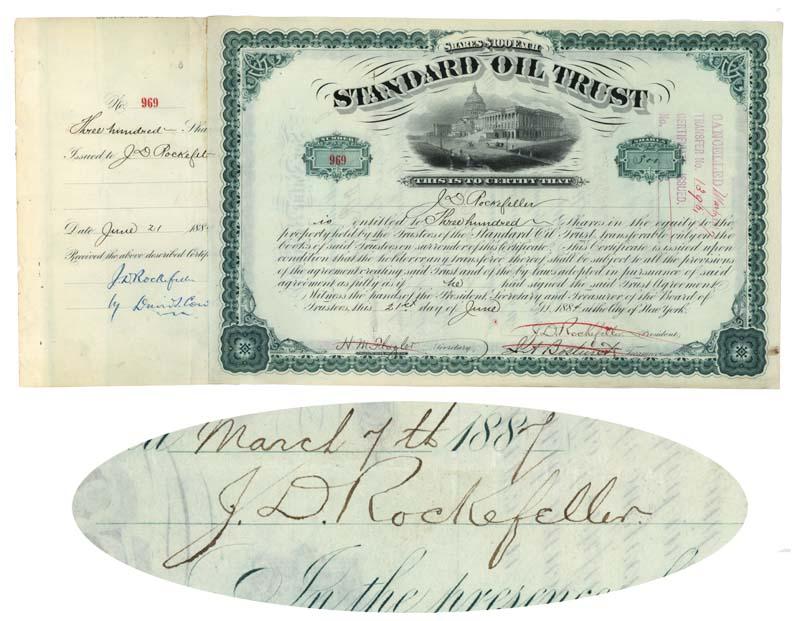 No. 969
Three hundred Sha
Issued to J.D. Rockefel
Date June 21 188
Received the above described Certif
J.D. Rockefell
by
SHARES $100 EACH
STANDARD OIL TRUST
NUMBER
969
SHARES
300
CANCELLED
TRANSFER No.
CERTIFICATE ISSUED.
No.
THIS IS TO CERTIFY THAT
J.D. Rockefeller
is entitled to Three hundred Shares in the equity to the
property held by the Trustees of the Standard Oil Trust, transferable only on the
books of said Trustees on surrender of this Certificate. This Certificate is issued upon
condition that the holder or any transferee thereof shall be subject to all the provisions
of the agreement creating said Trust and of the by laws adopted in pursuance of said
agreement as fully as if he had signed the said Trust Agreement
Witness the hands of the President, Secretary and Treasurer of the Board of
Trustees, this 21st day of June A.D. 1882 at the City of New York.
J.D. Rockefeller President,
H M Flagler Secretary
Treasurer
March 7th 1887
J. D. Rockefeller.
In the presence of